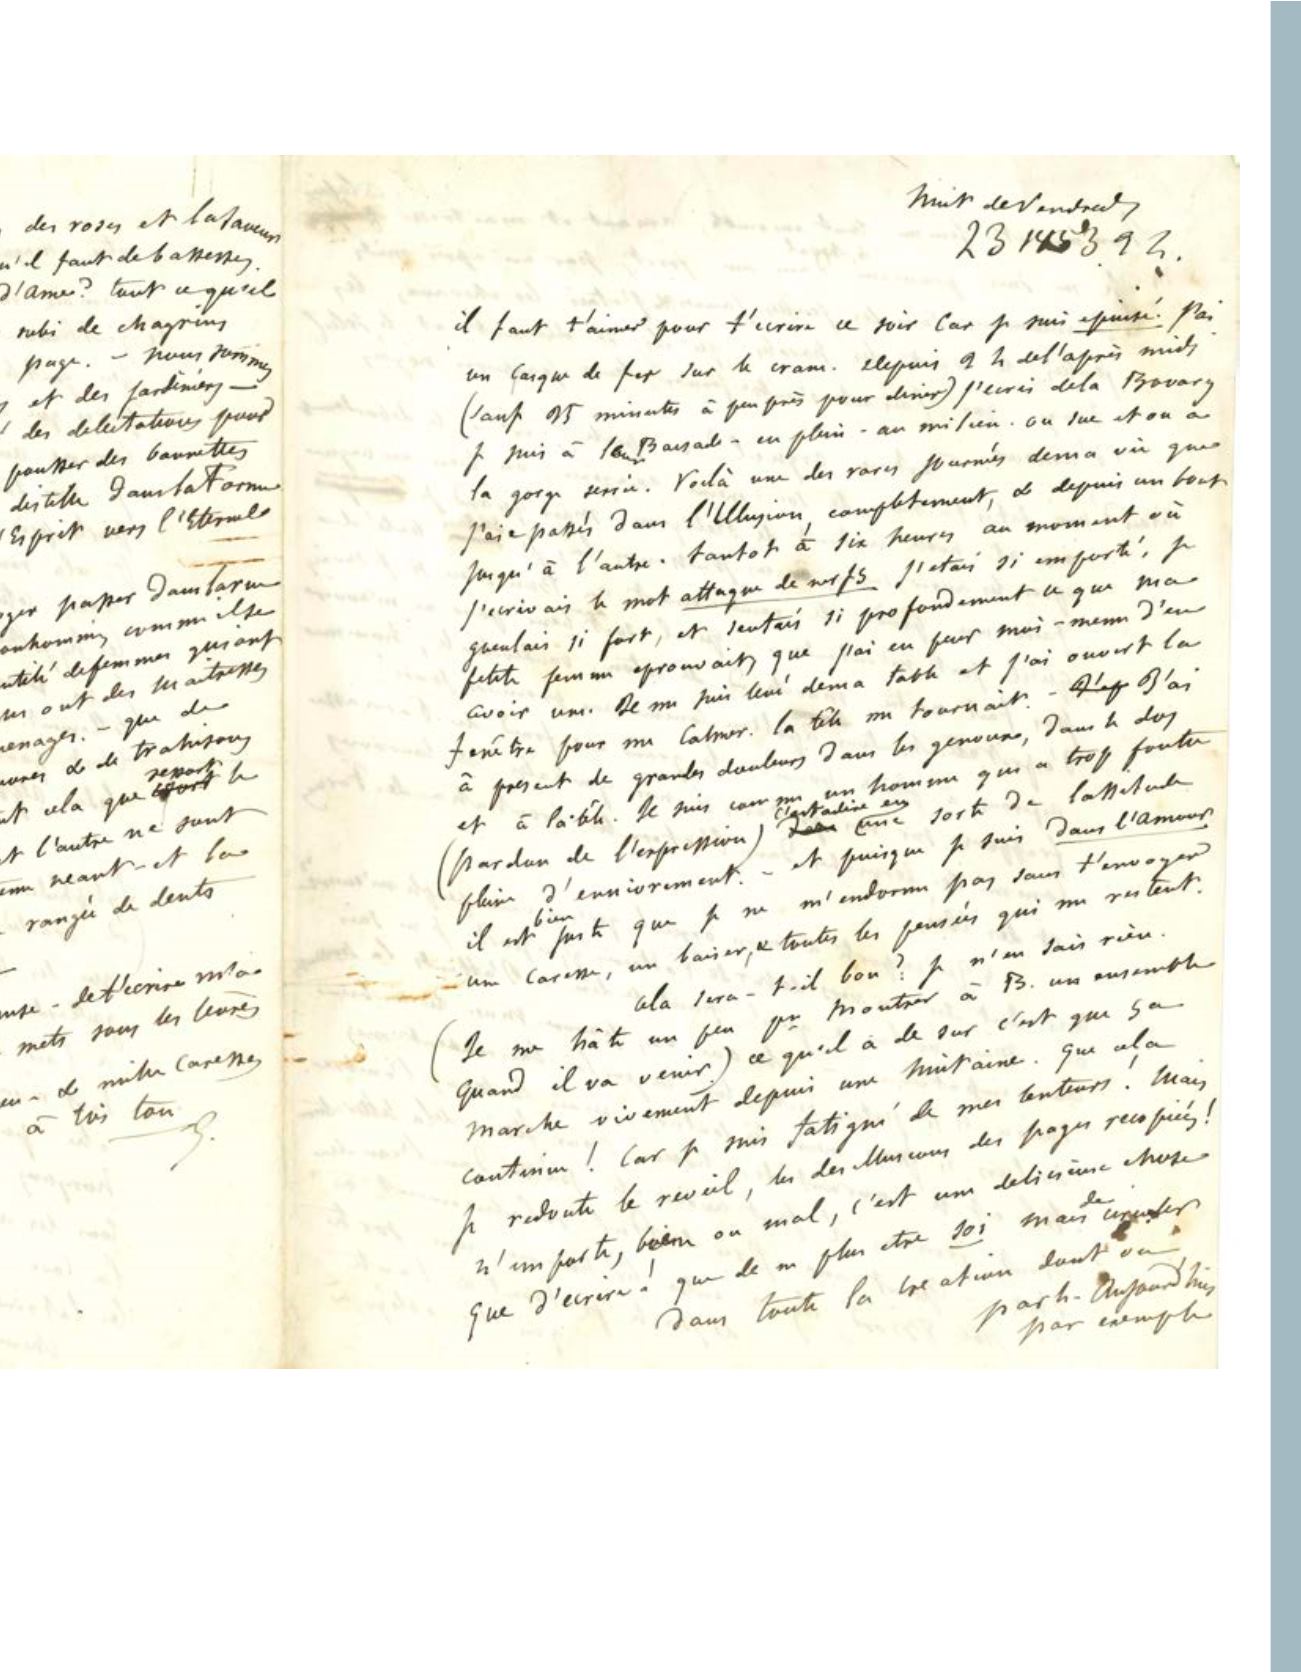 des roses et la saveur
qu'il faut de bassesses
d'ame? tout ce qu'il
subi de chagrins
page. - nous sommes
et des jardiniers -
des delectations pour
pousser des bannettes
distille dans la Forme
l'Esprit vers l'Eternel
passer dans la rue
bonhommes comme il se
de femmes qui ont
ont des maitresses
menages. - que de
& de trahisons
ressort
cela que le
et l'autre ne sont
neant - et la
rangée de dents
- de t'ecrire m'a
mets sous les levres
- & mille caresses
à toi ton
G.
Nuit de Vendredi
23 1853 2 h.
il faut t'aimer pour t'ecrire ce soir car je suis epuisé. J'ai
un casque de fer sur le crane. depuis 2 h de l'après midi
(sauf 25 minutes à peu près pour diner) j'ecris de la Bovary
je suis à leur Baisade - en plein - au milieu. on sue et on a
la gorge serrée. Voilà une des rares journées de ma vie que
j'aie passée dans l'Illusion, completement, & depuis un bout
jusqu'à l'autre. tantot à six heures au moment où
j'ecrivais le mot attaque de nerfs j'etais si emporté, je
gueulais si fort, et sentais si profondement ce que ma
petite femme eprouvait, que j'ai eu peur moi-meme d'en
avoir une. Je me suis levé de ma table et j'ai ouvert la
fenêtre pour me calmer. la tête me tournait. - J'ai
à present de grandes douleurs dans les genoux, dans le dos
et à la tête. Je suis comme un homme qui a trop foutu
c'est-à-dire en
(pardon de l'expression) une sorte de lassitude
pleine d'enivrement. - et puisque je suis dans l'Amour
bien
il est juste que je ne m'endorme pas sans t'envoyer
une caresse, un baiser, & toutes les pensées qui me restent.
cela sera-t-il bon? je n'en sais rien.
(Je me hâte un peu pr montrer à B. un ensemble
quand il va venir) ce qu'il a de sur c'est que ça
marche vivement depuis une huitaine. que cela
continue! car je suis fatigué de mes lenteurs! Mais
je redoute le reveil, les desillusions des pages recopiées!
n'importe, bien ou mal, c'est une delicieuse chose
de
que d'ecrire! que de ne plus etre soi mais circuler
dans toute la creation dont on
parle. Aujourd'hui
par exemple